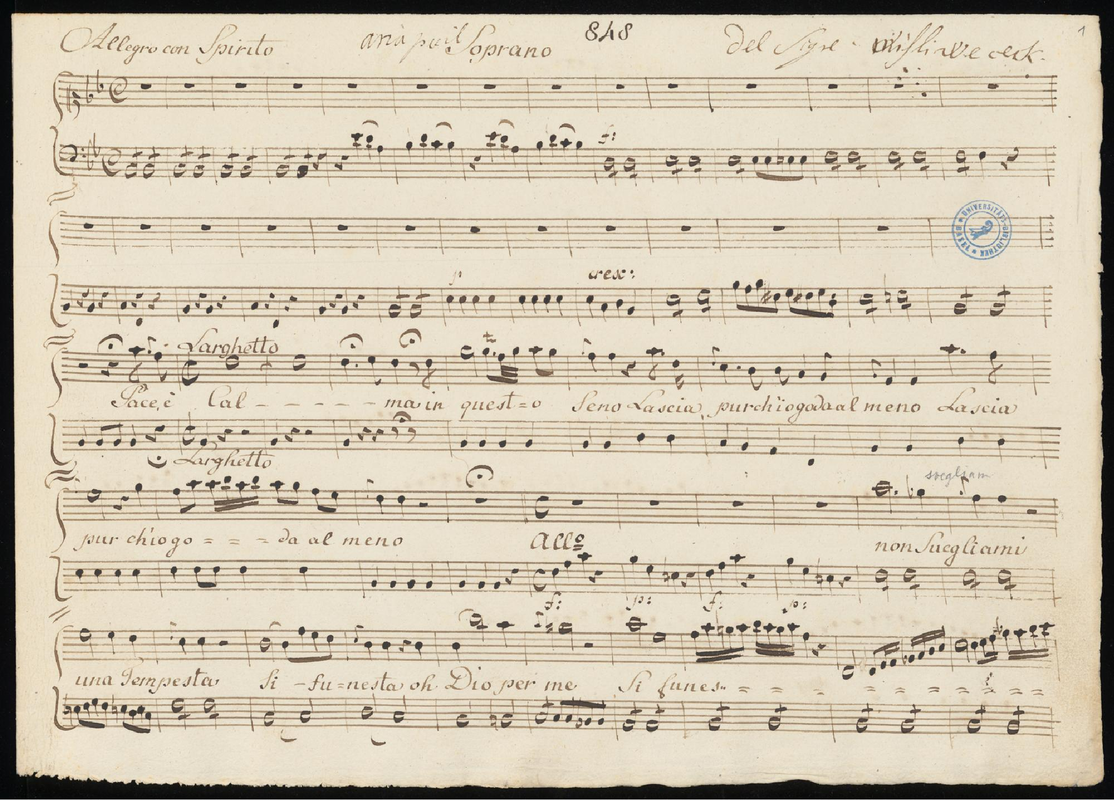 Allegro con Spirito aria p il Soprano 848 del Sigre Misliwececk. 1
f:
UNIVERSITÄTS-BIBLIOTHEK BASEL
p cresc:
Larghetto
Pace, è Cal - - - - - ma in quest=o Seno Lascia, purch'io goda al meno Lascia
Larghetto
svegliam
pur ch'io go = = = da al meno All.o non Suegliami
f: p: f: p:
una Tempesta Si - fu=nesta oh Dio per me, Si funes - = = = = = = = = = =